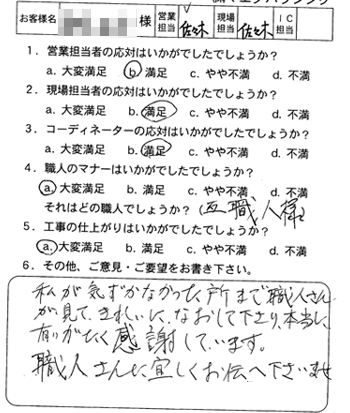 お客様名 様 営業担当 佐々木 現場担当 佐々木 IC担当
1．営業担当者の応対はいかがでしたでしょうか？
a. 大変満足 b. 満足 c. やや不満 d. 不満
2．現場担当者の応対はいかがでしたでしょうか？
a. 大変満足 b. 満足 c. やや不満 d. 不満
3．コーディネーターの応対はいかがでしたでしょうか？
a. 大変満足 b. 満足 c. やや不満 d. 不満
4．職人のマナーはいかがでしたでしょうか？
a. 大変満足 b. 満足 c. やや不満 d. 不満
それはどの職人でしょうか？（ 職人様）
5．工事の仕上がりはいかがでしたでしょうか？
a. 大変満足 b. 満足 c. やや不満 d. 不満
6．その他、ご意見・ご要望をお書き下さい。
私が気ずかなかった所まで職人さん
が見て、きれいに、なおして下さり、本当に
有りがたく感謝しています。
職人さんに宜しくお伝へ下さいませ